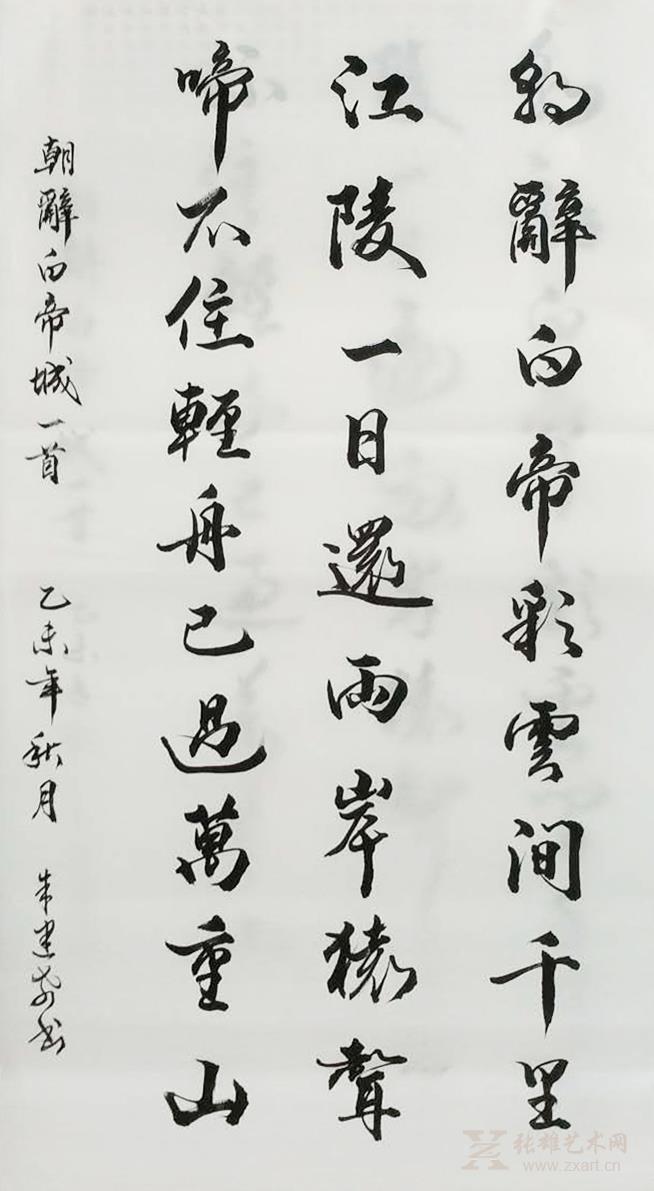 朝辭白帝彩雲澗千里
江陵一日還兩岸猿聲
啼不住輕舟已過萬重山
朝辭白帝城一首 乙未年秋月 朱建 書
张雄艺术网
www.zxart.cn